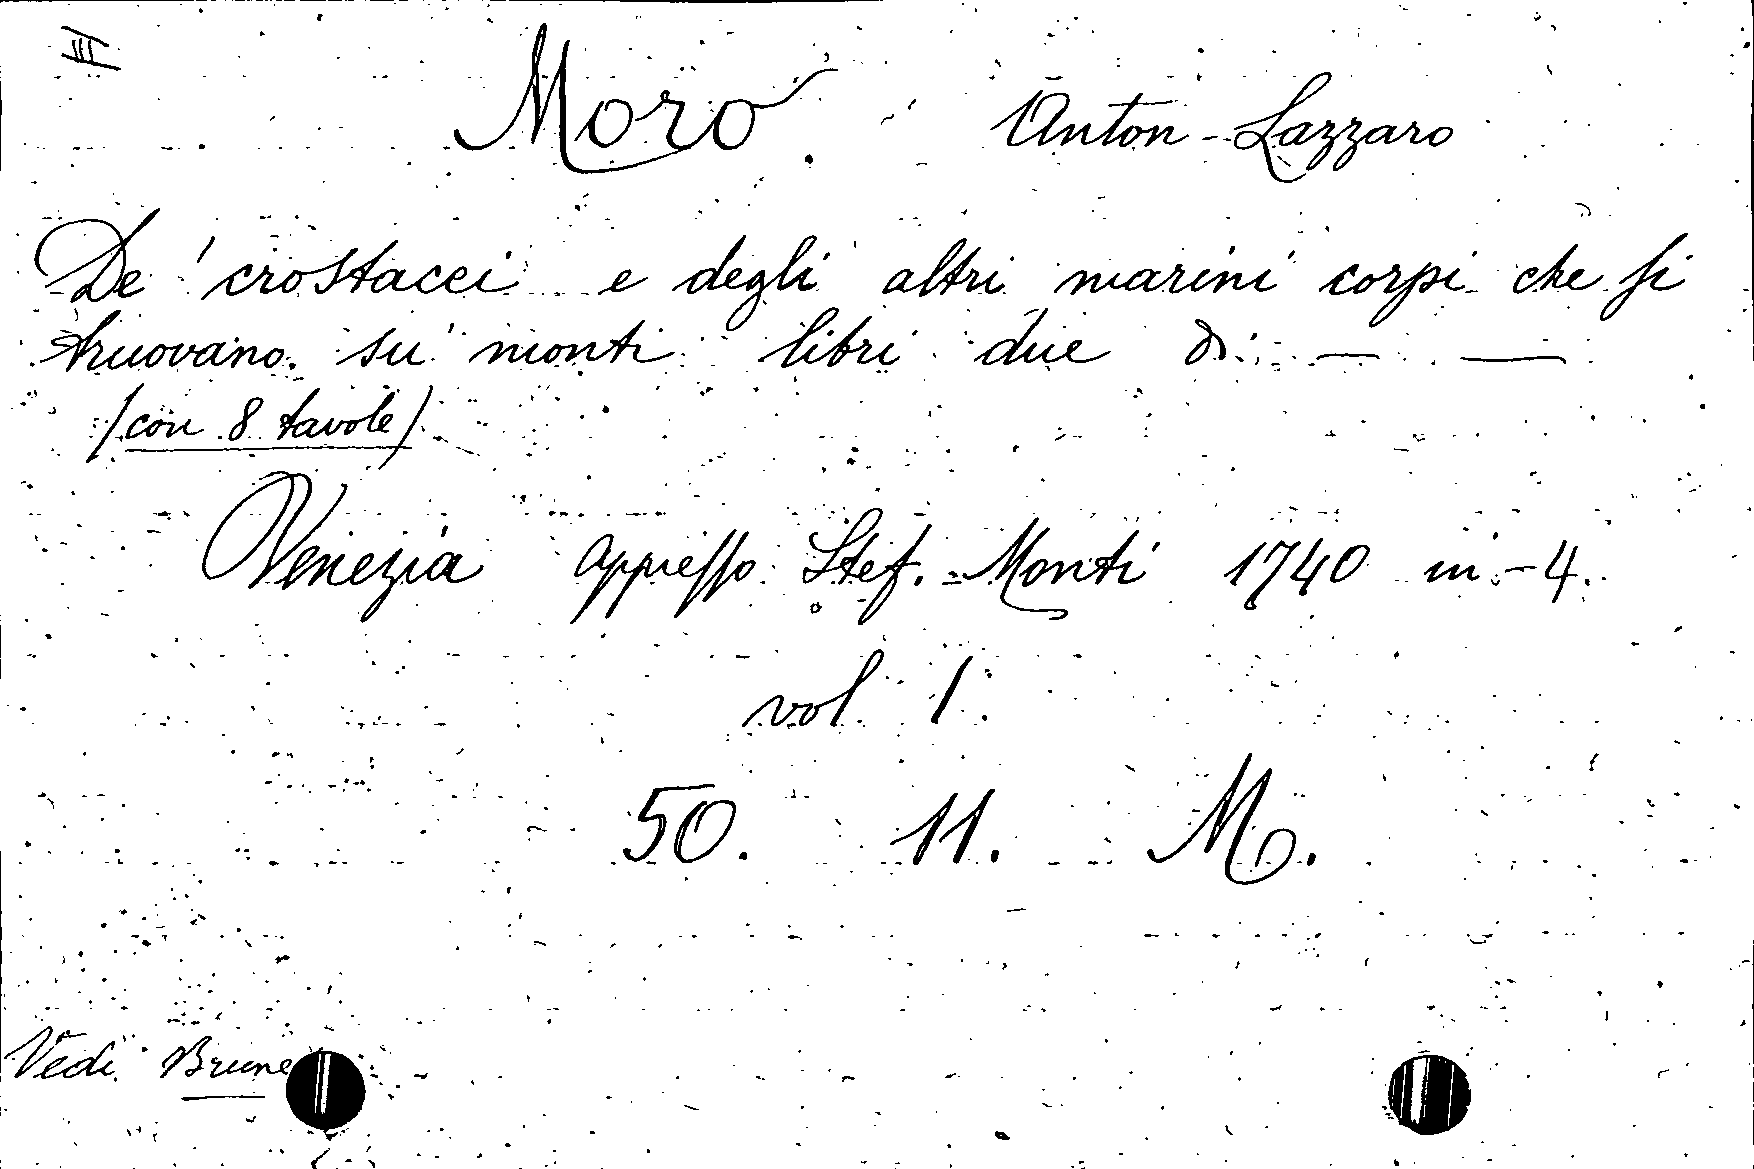 III
Moro. Anton-Lazzaro
De' crostacei e degli altri marini corpi che si
truovano su' monti libri due di — —
(con 8 tavole)
Venezia appresso Stef. Monti 1740 in-4.
vol 1.
50. 11. M.
Vedi